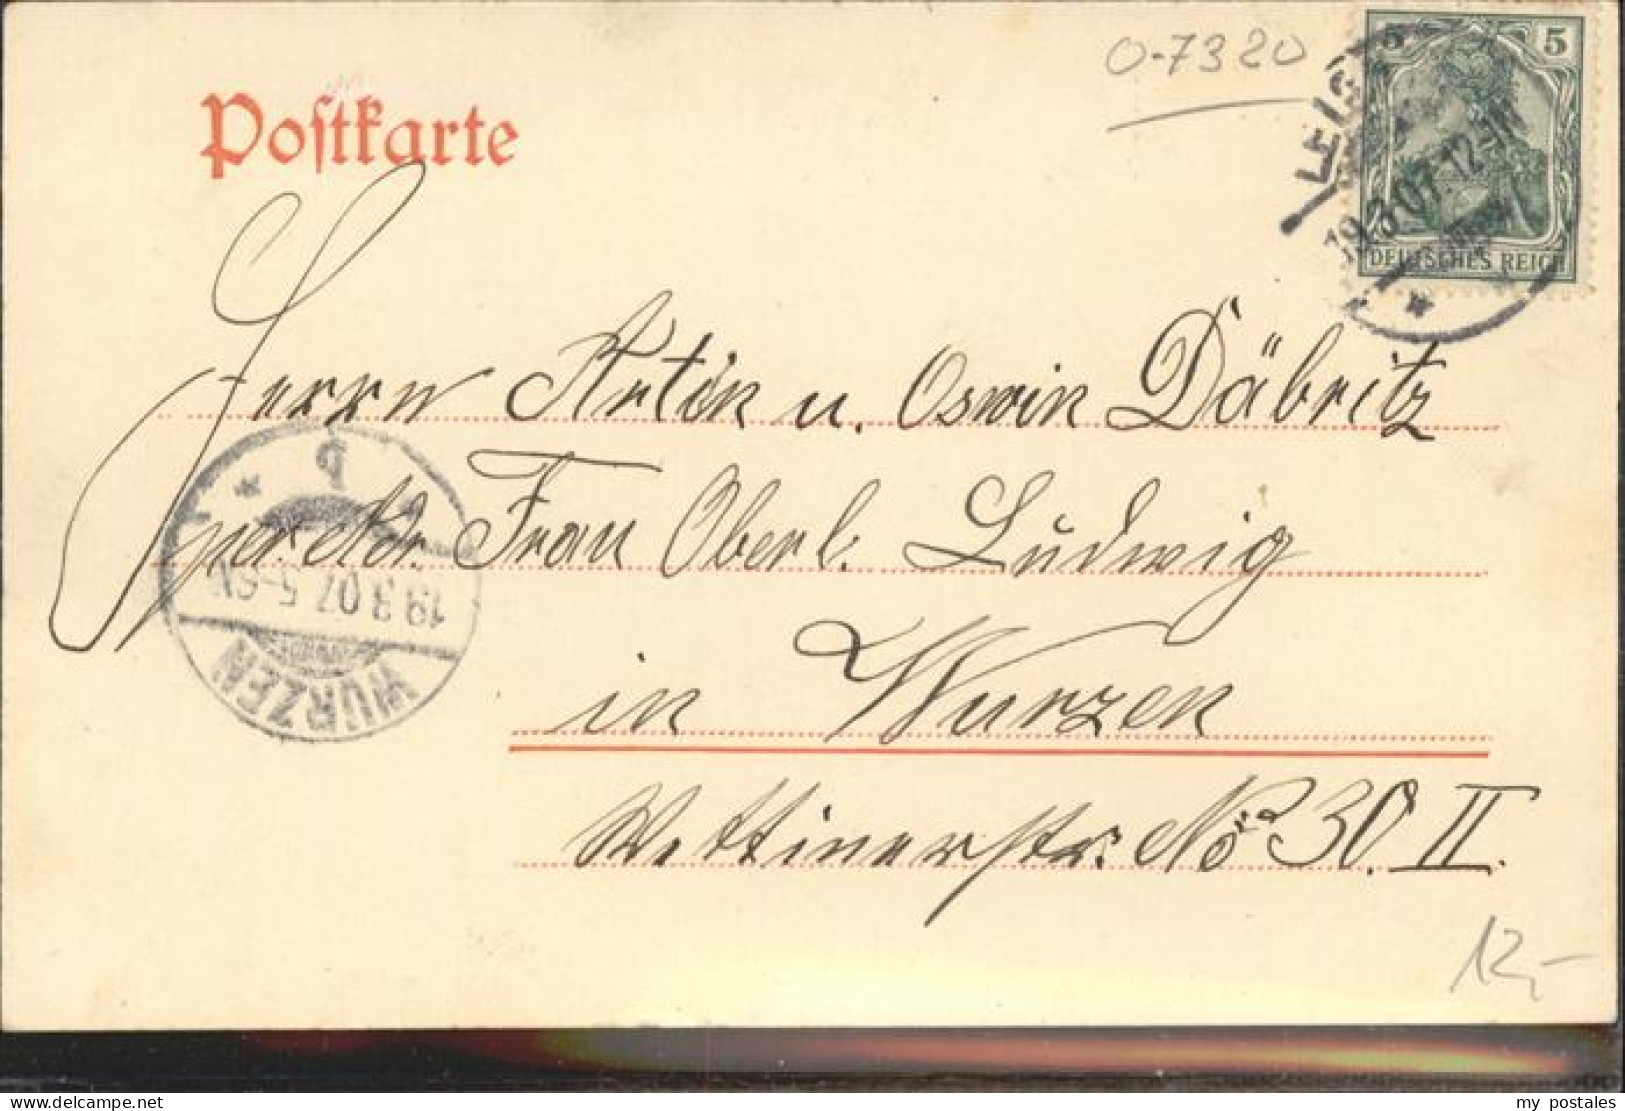 Postkarte
0-7320
5 5
LEIS
19.3.07.12-1N
DEUTSCHES REICH
Herrn Artin u. Oswin Däbritz
per Adr. Frau Oberl. Ludwig
in Wurzen
Wettinerstr. No 30. II.
WURZEN
19.3.07.5-6N
12,-
my postales